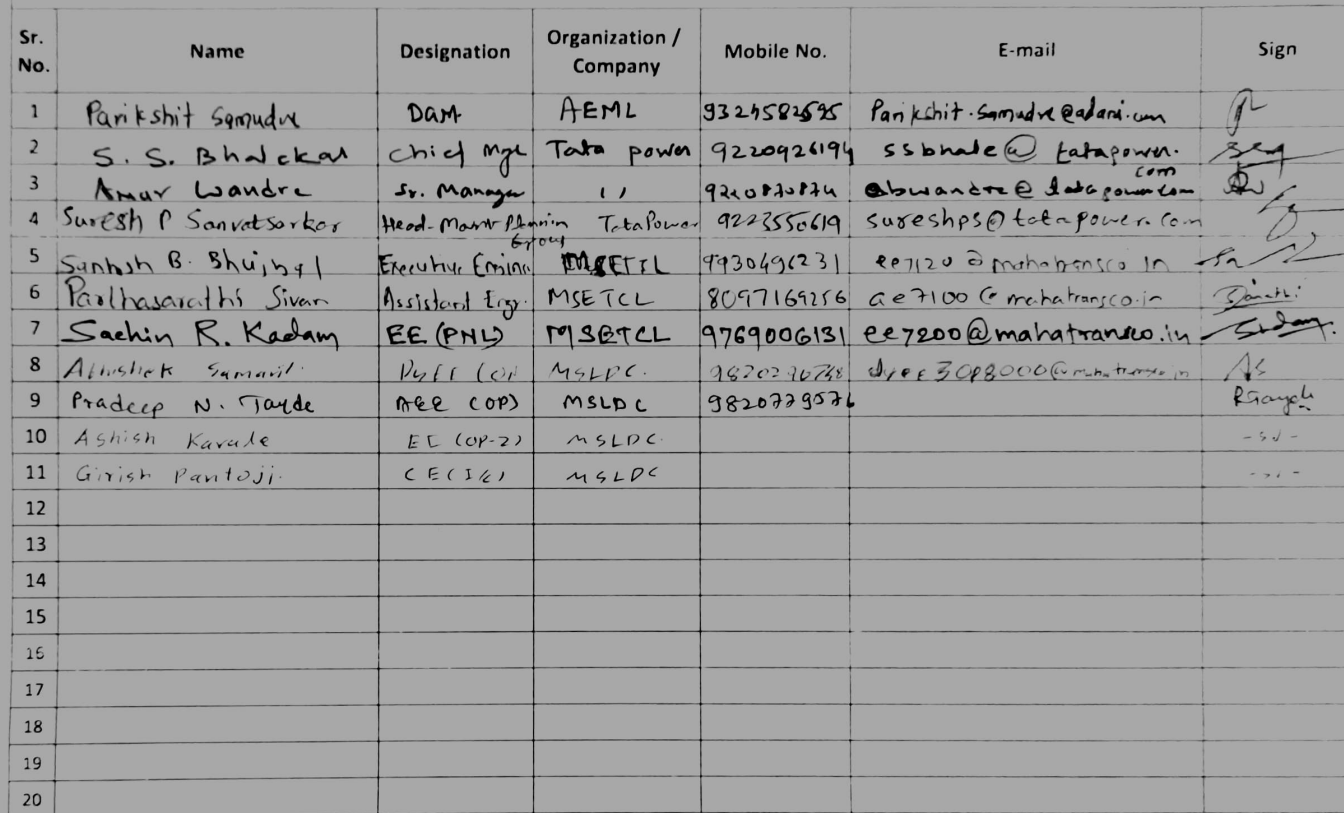 Sr. No. Name Designation Organization / Company Mobile No. E-mail Sign
1 Parikshit Samudre DGM AEML Parikshit.samudre@adani.com
2 S. S. Bhalekar Chief Mgr Tata power 9220926194 ssbhale@tatapower.com
3 Amur Wandre Sr. Manager 11 abwandre@tatapower.com
4 Suresh P Sanvatsarkar Head- Maint Planning Group TataPower 9223550619 sureshps@tatapower.com
5 Santosh B. Bhujbal Executive MSETCL 9930496231 ee7120@mahatransco.in
6 Parthasarathi Sivan Assistant Engr. MSETCL 8097169256 ae7100@mahatransco.in
7 Sachin R. Kadam EE (PNL) MSETCL 9769006131 ee7200@mahatransco.in
8 MSLDC.
9 Pradeep N. Tayde AEE (OP) MSLDC 9820779576
10 Ashish Karade EE (OP-2) MSLDC.
11 Girish Pantoji. CE(I/c) MSLDC
12
13
14
15
16
17
18
19
20